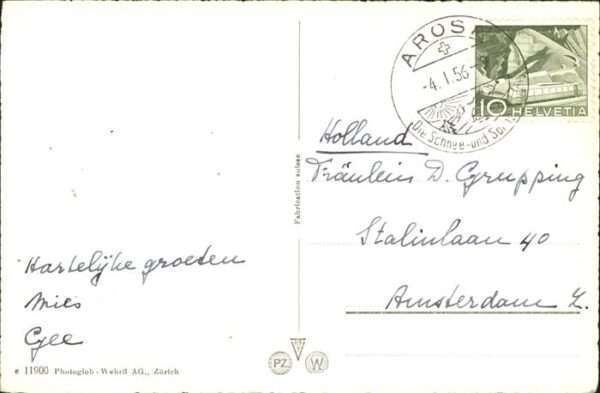 AROSA
-4.I.56
Die Schnee- und
10 HELVETIA
Holland
Fräulein D. Grupping
Stalinlaan 40
Amsterdam Z.
Hartelijke groeten
Mies
Gee
Fabrication suisse
PZ
W
e 11900 Photoglob-Wehrli AG., Zürich